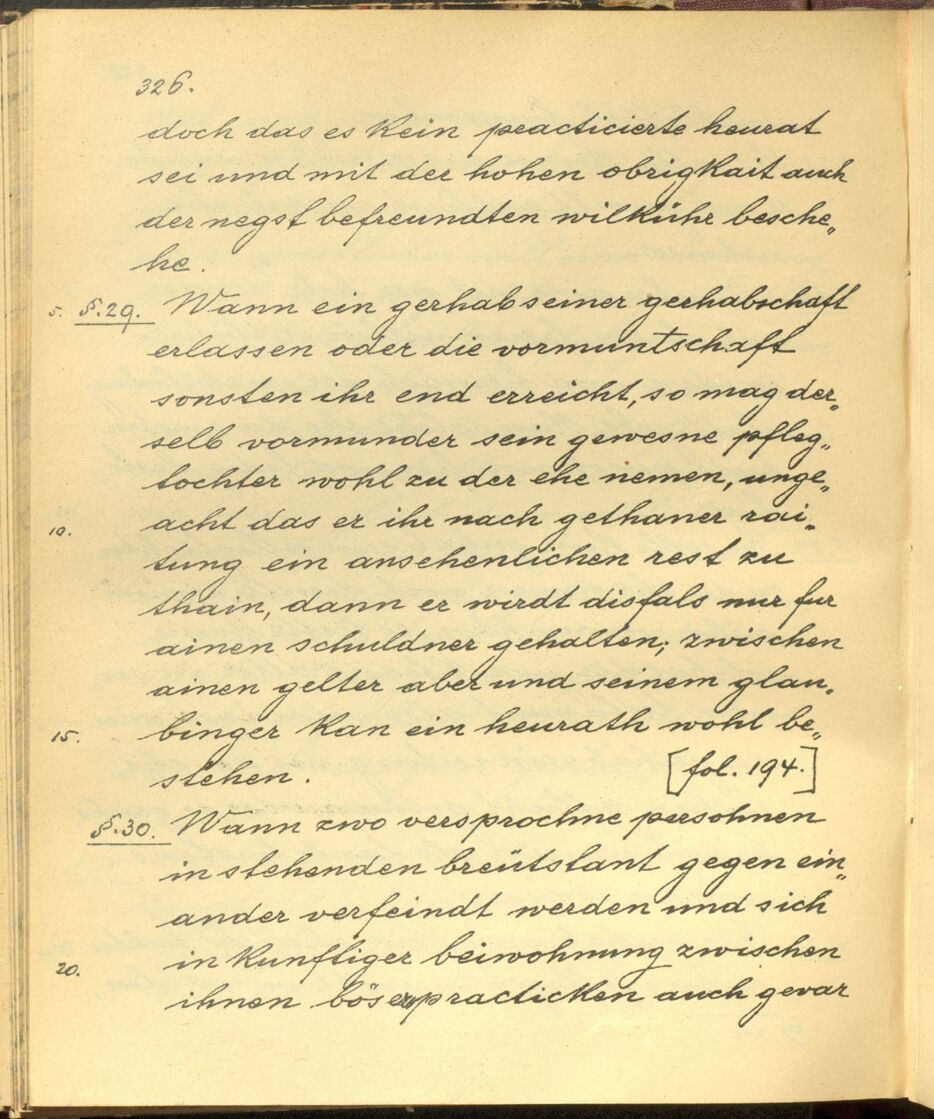 326.
doch das es kein practicierte heurat
sei und mit der hohen obrigkait auch
der negst befreundten wilkühr besche„
he.
5. §.29. Wann ein gerhab seiner gerhabschaft
erlassen oder die vormuntschaft
sonsten ihr end erreicht, so mag der„
selb vormunder sein gewesne pfleg„
tochter wohl zu der ehe nemen, unge„
10. acht das er ihr nach gethaner rai„
tung ein ansehenlichen rest zu
thain, dann er wirdt disfals nur fur
ainen schuldner gehalten; zwischen
ainen gelter aber und seinem glau„
15. binger kan ein heurath wohl be„
stehen. [fol. 194.]
§.30. Wann zwo versprochne persohnen
in stehenden breütstant gegen ein„
ander verfeindt werden und sich
20. in kunftiger beiwohnung zwischen
ihnen böser practicken auch gevar